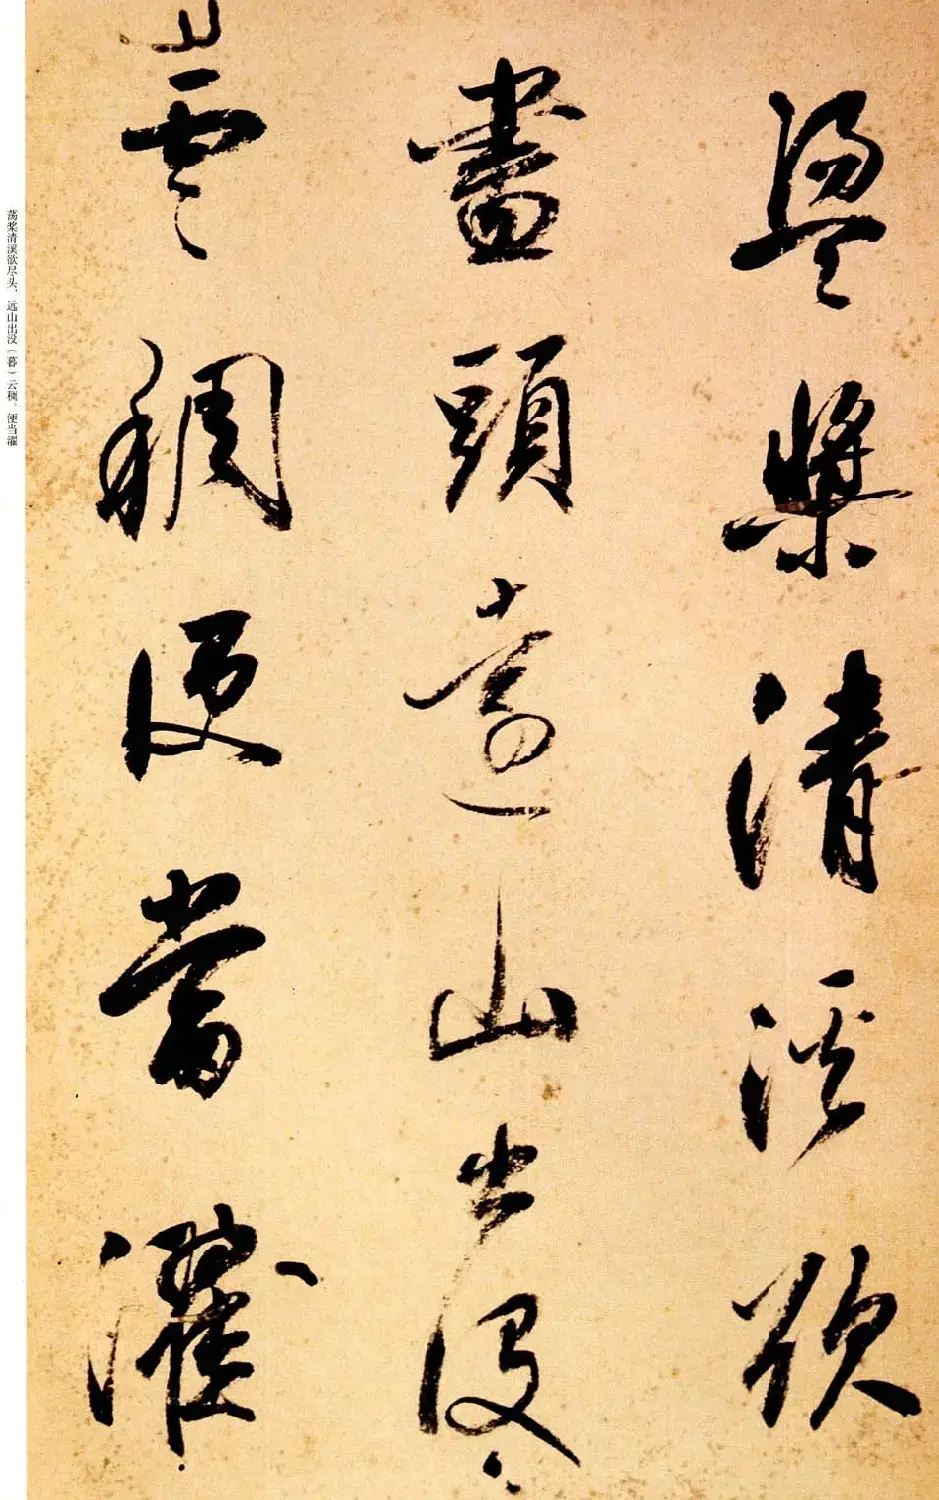 盪槳清溪欲
盡頭遠山出没
雲稠便當濯
荡桨清溪欲尽头,远山出没(暮)云稠。便当濯